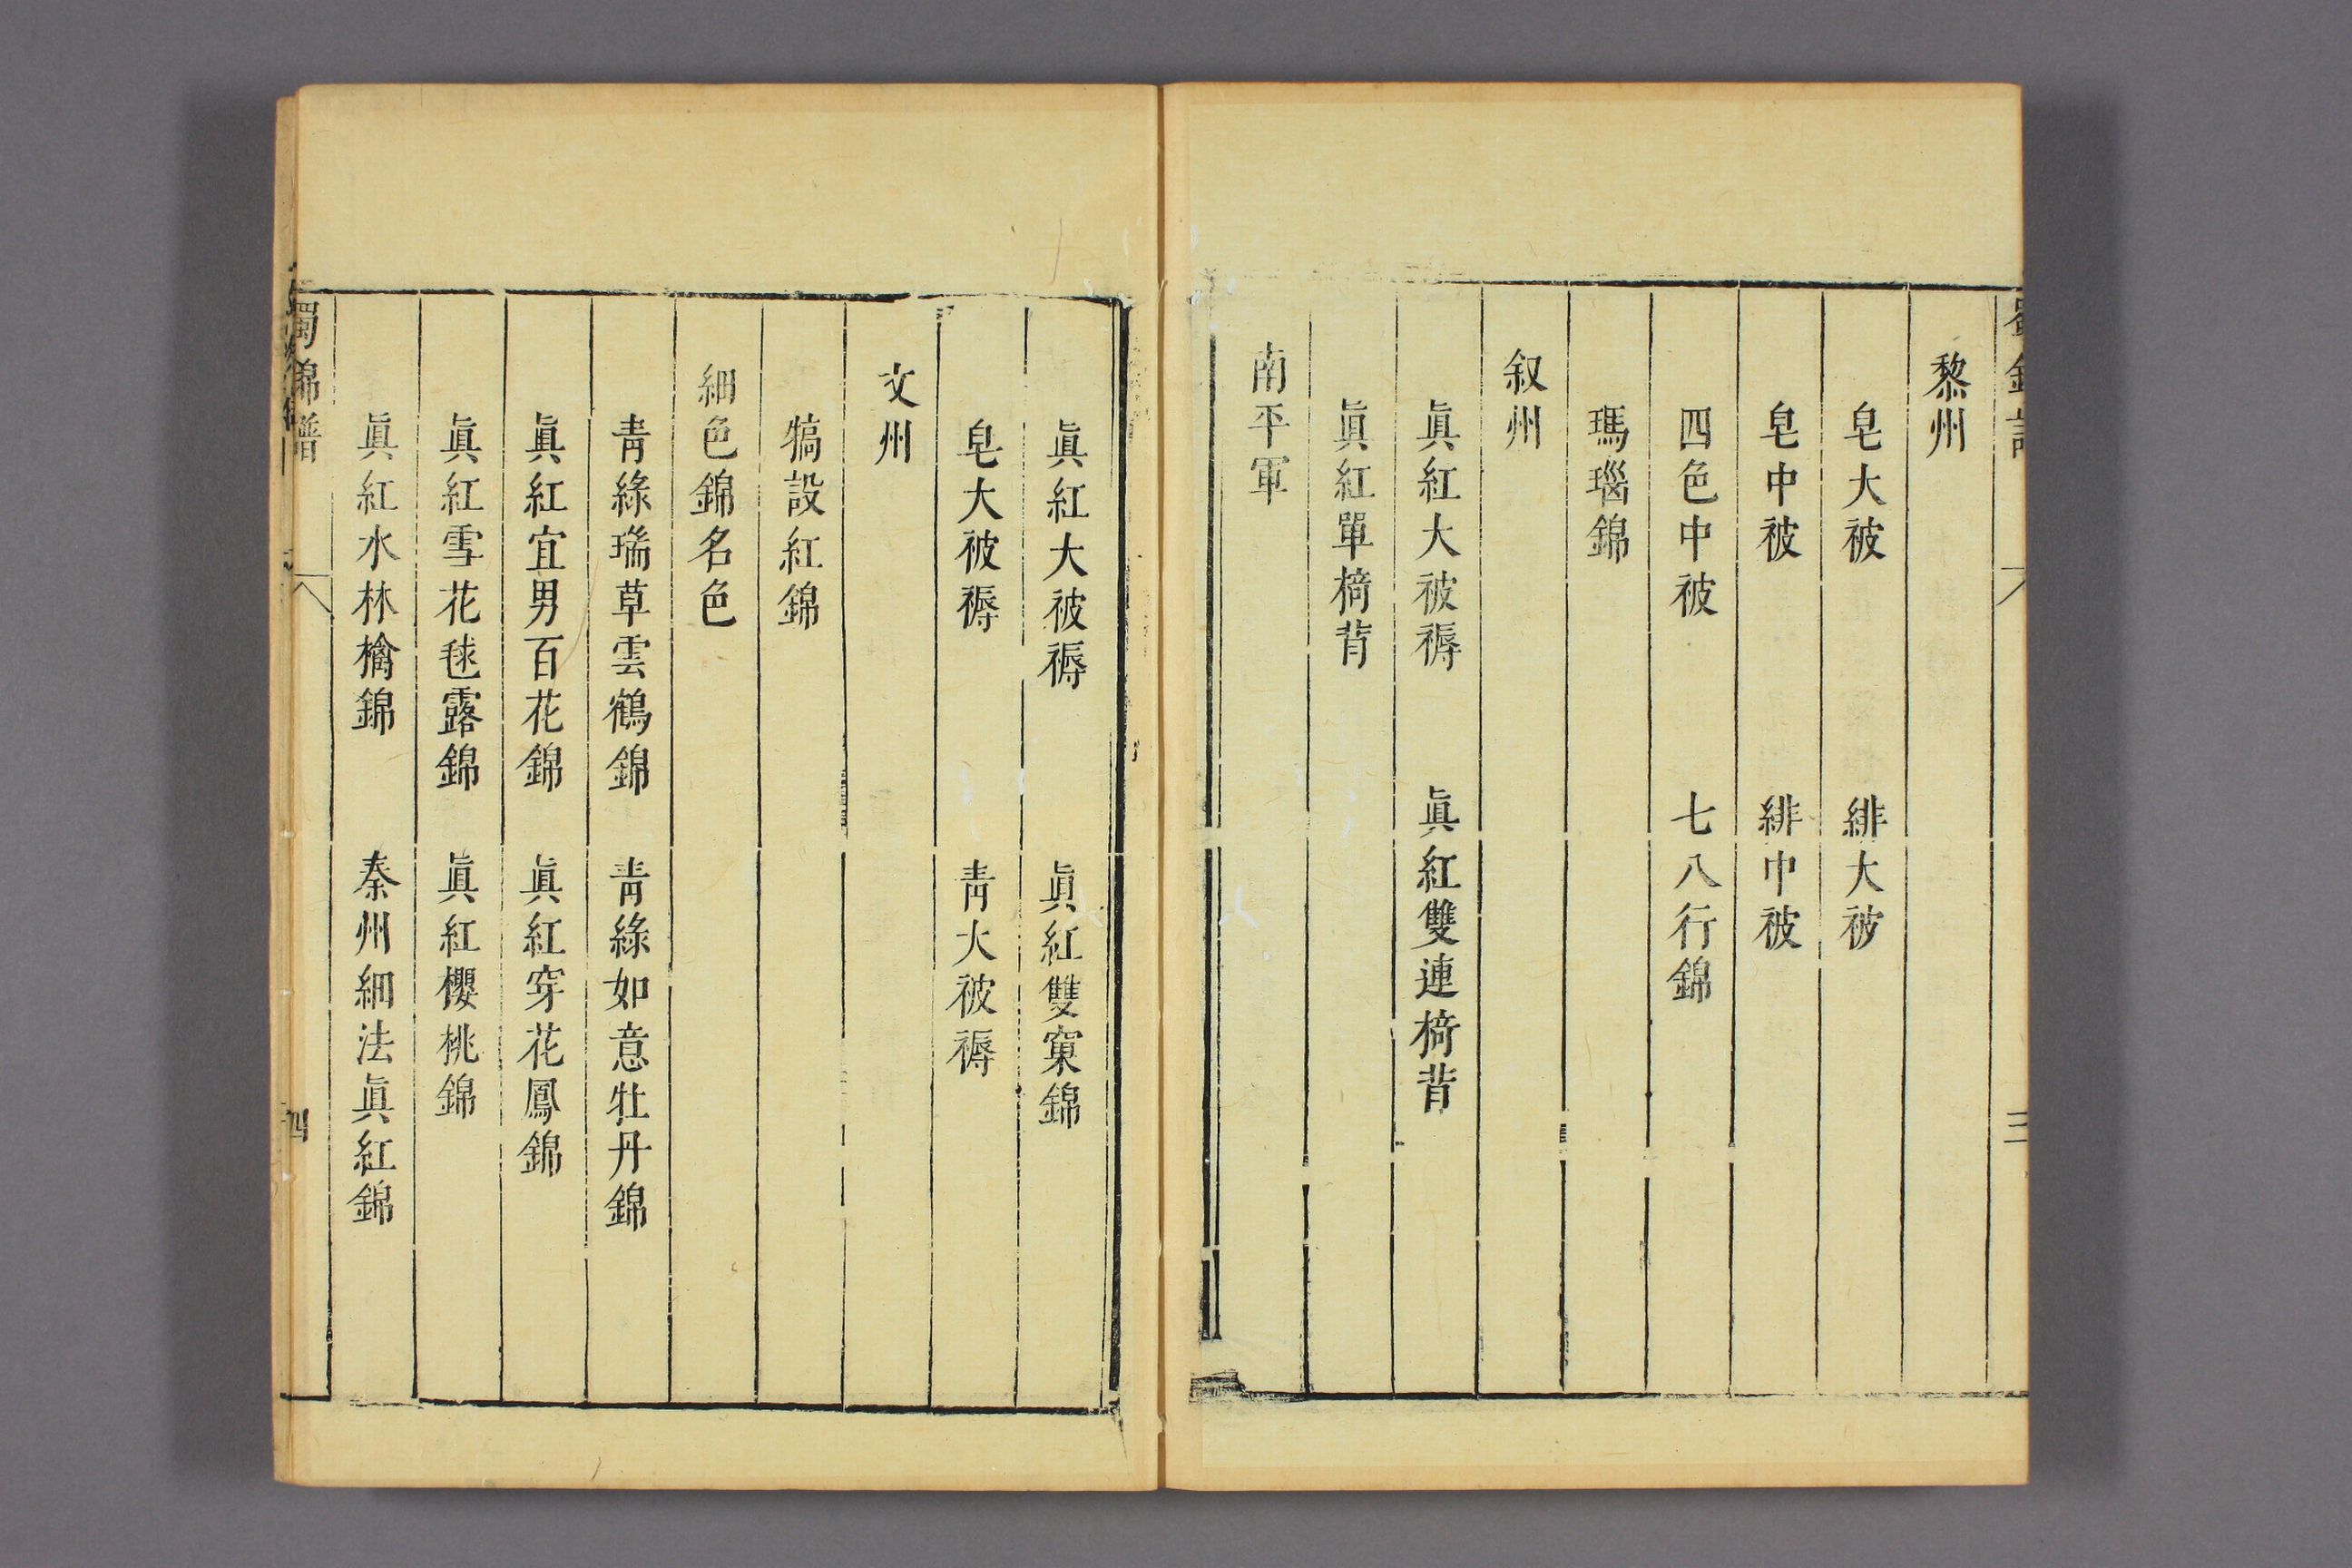 黎州
皂大被　緋大被
皂中被　緋中被
四色中被　七八行錦
瑪瑙錦
叙州
眞紅大被褥　眞紅雙連椅背
眞紅單椅背
南平軍
眞紅大被褥　眞紅雙窠錦
皂大被褥　青大被褥
文州
犒設紅錦
細色錦名色
青綠瑞草雲鶴錦　青綠如意牡丹錦
眞紅宜男百花錦　眞紅穿花鳳錦
眞紅雪花毬露錦　眞紅櫻桃錦
眞紅水林檎錦　秦州細法眞紅錦
蜀錦譜　四